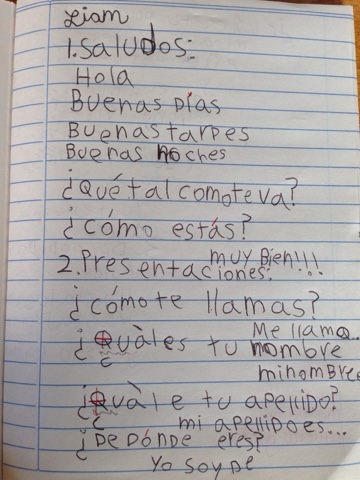 Liam
1. Saludos:
Hola
Buenas Días
Buenas tardes
Buenas noches
¿Qué tal como te va?
¿cómo estás?
muy Bien!!!
2. Presentaciones:
¿cómo te llamas?
Me llamo...
¿Quàl es tu nombre
mi nombre
¿Quàl e tu apellido?
mi apellido es...
¿De DÓnDe eres?
Yo soy De